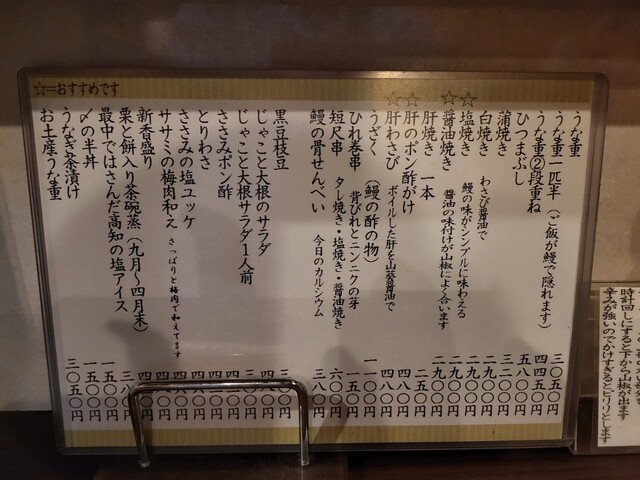 ☆=おすすめです
うな重 三〇五〇円
うな重一匹半(ご飯が鰻で隠れます) 四四五〇円
うな重②段重ね
ひつまぶし
蒲焼き
白焼き わさび醤油で 二九〇〇円
☆塩焼き 鰻の味がシンプルに味わえる 二九〇〇円
☆醤油焼き 醤油の味付けが山椒によく合います 二九〇〇円
肝焼き 一本 二五〇円
☆肝のポン酢がけ 四八〇円
☆肝わさび ボイルした肝を山葵醤油で 四八〇円
うざく (鰻の酢の物) 一一〇〇円
ひれ巻串 背びれとニンニクの芽 一五〇円
短尺串 タレ焼き・塩焼き・醤油焼き 六〇〇円
鰻の骨せんべい 今日のカルシウム 三八〇円
黒豆枝豆
じゃこと大根のサラダ
じゃこと大根サラダ1人前
ささみポン酢
とりわさ
ささみの塩ユッケ
ササミの梅肉和え さっぱりと梅肉で和えてます
新香盛り
栗と餅入り茶碗蒸(九月〜四月末)
最中ではさんだ高知の塩アイス
〆の半丼 一五〇〇円
うなぎ茶漬け 一五〇〇円
お土産うな重 三〇五〇円
時計回しにすると下から山椒が出ます
辛みが強いのでかけすぎるとピリリとします